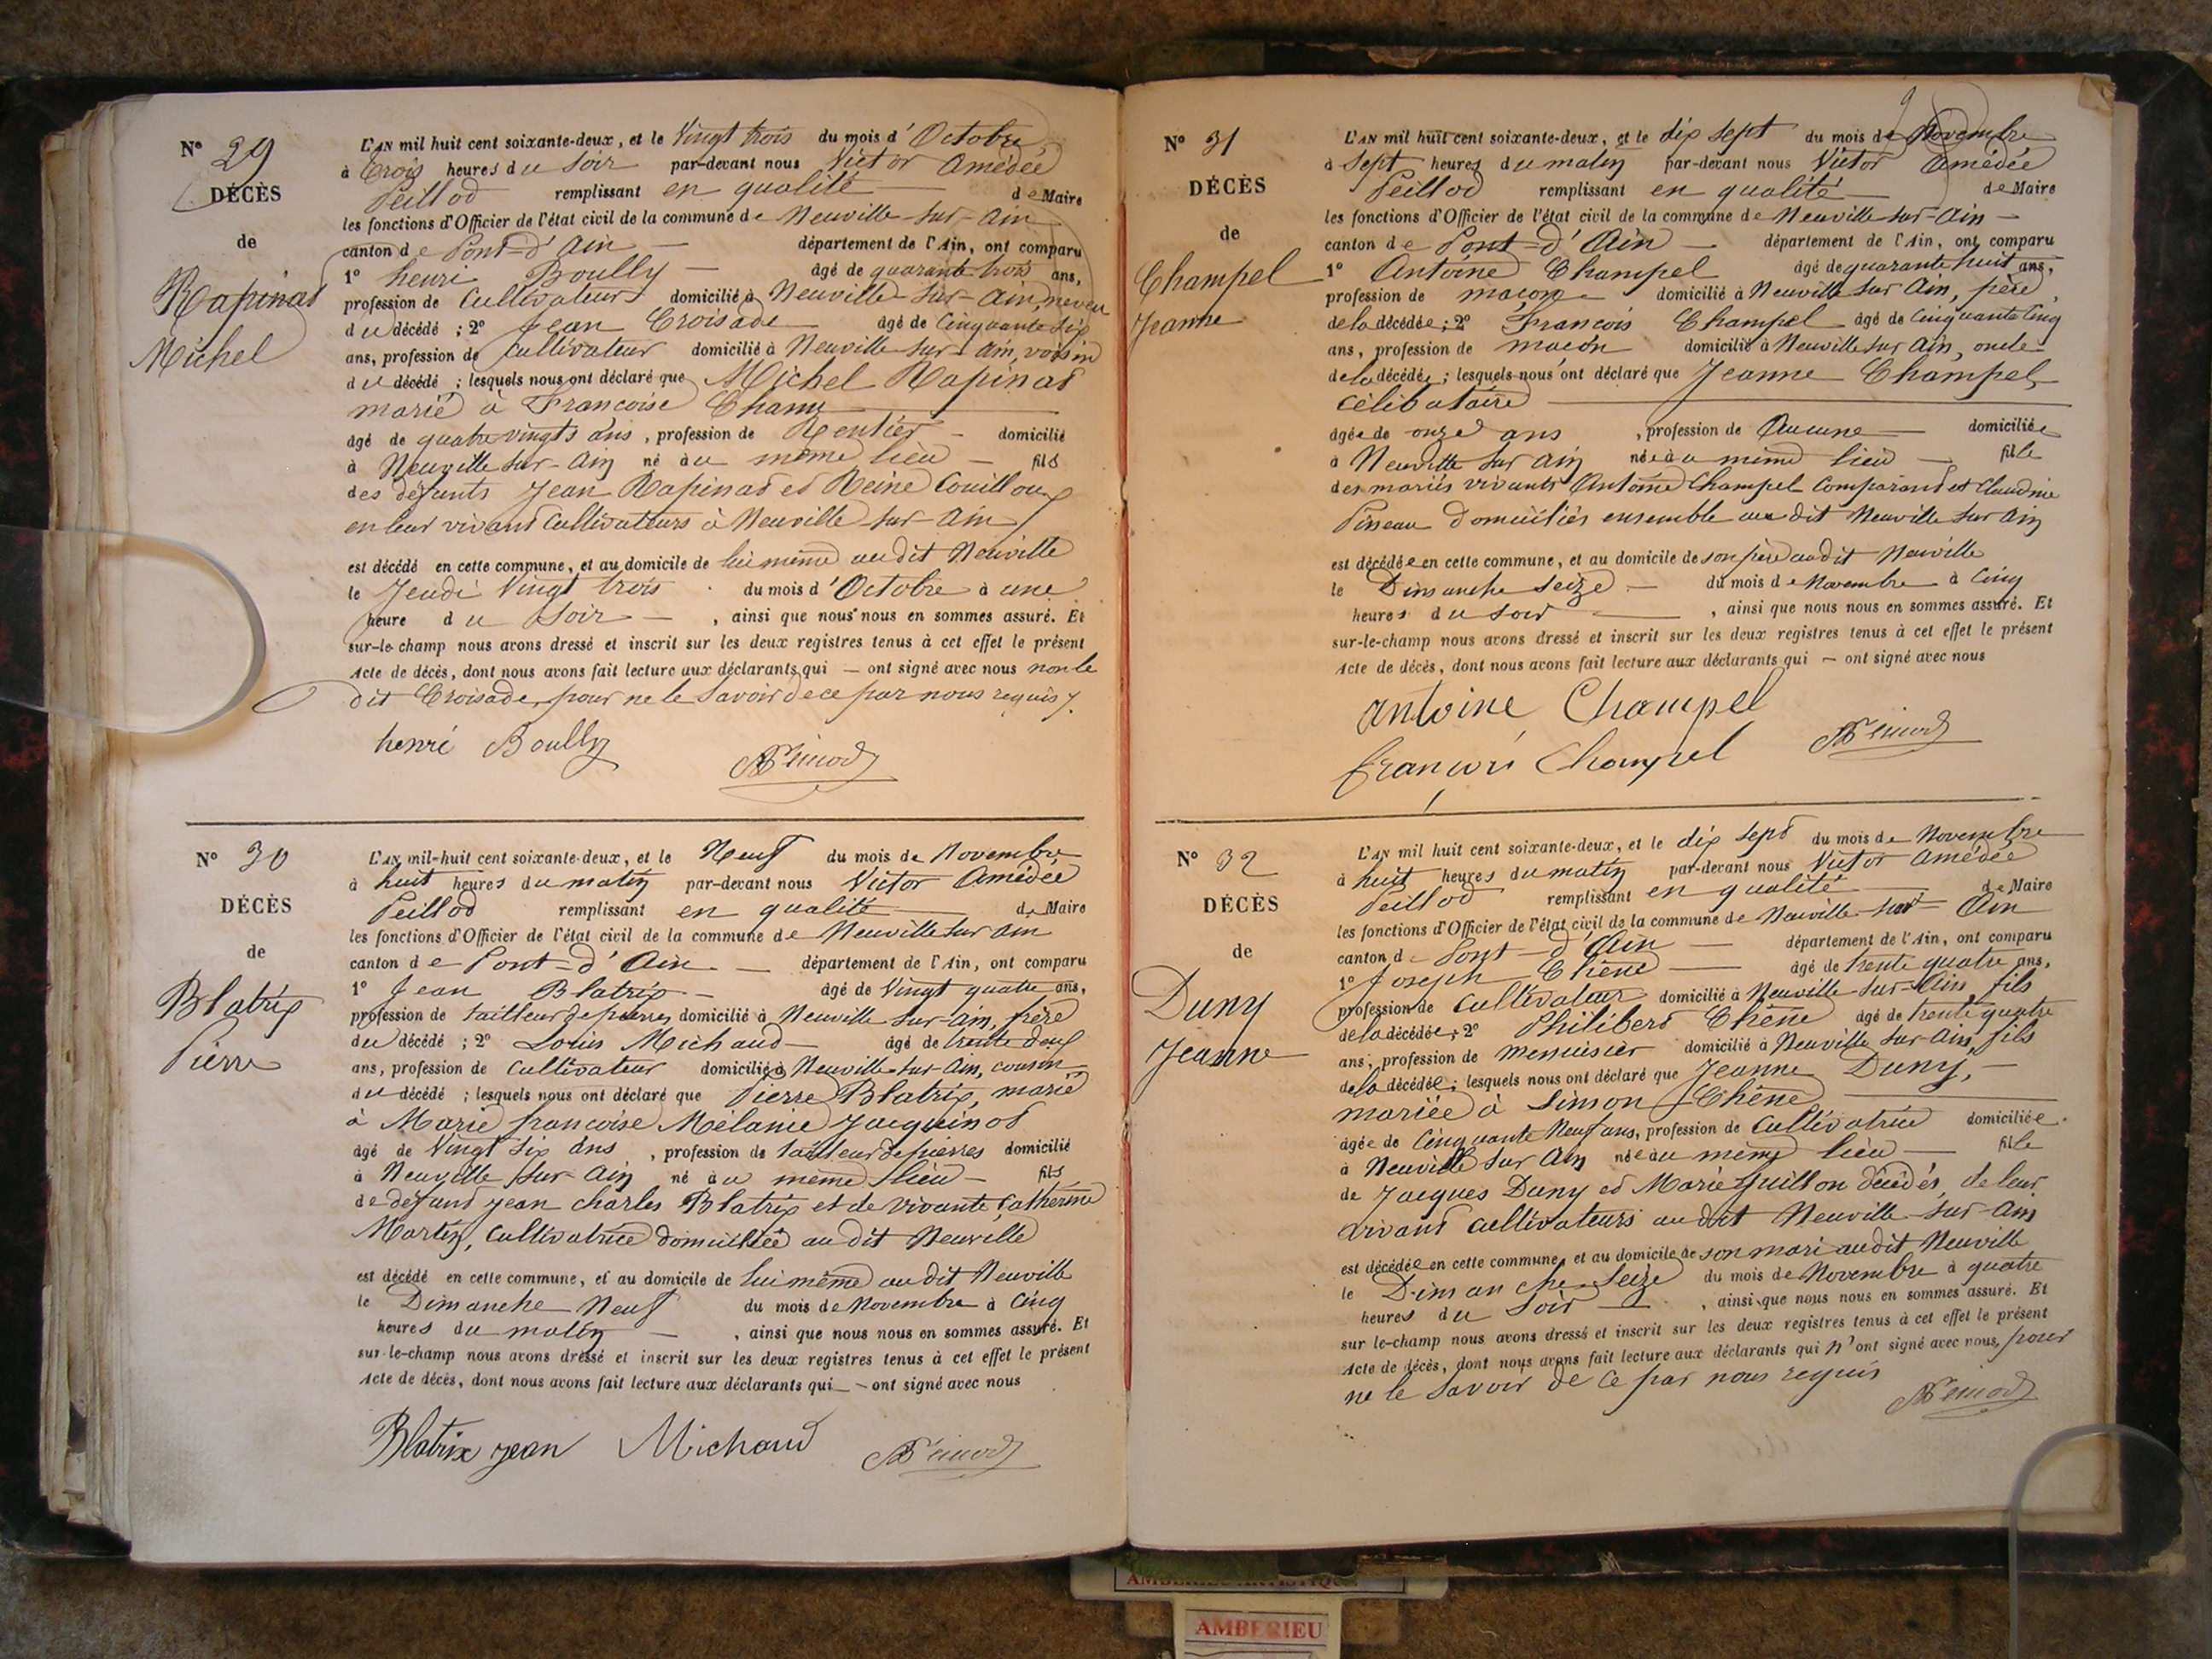 N° 29
DÉCÈS
de
Rapinat
Michel
L'AN mil huit cent soixante-deux, et le Vingt trois du mois d'Octobre,
à trois heures du soir par-devant nous Victor Amédée
Peillod remplissant en qualité de Maire
les fonctions d'Officier de l'état civil de la commune de Neuville-sur-Ain
canton de Pont-d'Ain — département de l'Ain, ont comparu
1° henri Boully — âgé de quarante trois ans,
profession de Cultivateur domicilié à Neuville-sur-Ain, neveu
du décédé ; 2° Jean Croisade âgé de Cinquante six
ans, profession de Cultivateur domicilié à Neuville-sur-Ain, voisin
du décédé ; lesquels nous ont déclaré que Michel Rapinat
marié à Francoise Chany
âgé de quatre vingts ans, profession de Rentier — domicilié
à Neuville-sur-Ain né au même lieu — fils
des défunts Jean Rapinat et Reine Couilloux
en leur vivant Cultivateurs à Neuville-sur-Ain
est décédé en cette commune, et au domicile de lui même au dit Neuville
le Jeudi Vingt trois du mois d'Octobre à une
heure du Soir —, ainsi que nous nous en sommes assuré. Et
sur-le-champ nous avons dressé et inscrit sur les deux registres tenus à cet effet le présent
Acte de décès, dont nous avons fait lecture aux déclarants qui — ont signé avec nous non le
dit Croisade, pour ne le Savoir de ce par nous requis.
henri Boully
N° 30
DÉCÈS
de
Blatrix
Pierre
L'AN mil-huit cent soixante-deux, et le Neuf du mois de Novembre
à huit heures du matin par-devant nous Victor Amédée
Peillod remplissant en qualité de Maire
les fonctions d'Officier de l'état civil de la commune de Neuville sur Ain
canton de Pont-d'Ain — département de l'Ain, ont comparu
1° Jean Blatrix — âgé de Vingt quatre ans,
profession de tailleur de pierres domicilié à Neuville-sur-Ain, frère
du décédé ; 2° Louis Michaud — âgé de trente deux
ans, profession de Cultivateur domicilié à Neuville-sur-Ain, cousin
du décédé ; lesquels nous ont déclaré que Pierre Blatrix, marié
à Marie francoise Mélanie Jacquinot
âgé de Vingt six ans, profession de tailleur de pierres domicilié
à Neuville sur Ain né au même lieu — fils
de défunt jean charles Blatrix et de vivante Catherine
Martin, Cultivatrice domiciliée au dit Neuville
est décédé en cette commune, et au domicile de lui même au dit Neuville
le Dimanche Neuf du mois de Novembre à Cinq
heures du matin —, ainsi que nous nous en sommes assuré. Et
sur-le-champ nous avons dressé et inscrit sur les deux registres tenus à cet effet le présent
Acte de décès, dont nous avons fait lecture aux déclarants qui — ont signé avec nous
Blatrix jean Michaud
N° 31
DÉCÈS
de
Champel
Jeanne
9
L'AN mil huit cent soixante-deux, et le dix sept du mois de Novembre
à Sept heures du matin par-devant nous Victor Amédée
Peillod remplissant en qualité de Maire
les fonctions d'Officier de l'état civil de la commune de Neuville sur-Ain —
canton de Pont-d'Ain — département de l'Ain, ont comparu
1° Antoine Champel âgé de quarante huit ans,
profession de maçon — domicilié à Neuville sur Ain, père
de la décédée ; 2° Francois Champel âgé de Cinquante Cinq
ans, profession de macon domicilié à Neuville sur Ain, oncle
de la décédée ; lesquels nous ont déclaré que Jeanne Champel
célibataire
âgée de onze ans, profession de Aucune — domiciliée
à Neuville sur Ain née au même lieu — fille
des mariés vivants Antoine Champel Comparant et Claudine
Pineau domiciliés ensemble au dit Neuville sur Ain
est décédée en cette commune, et au domicile de son père au dit Neuville
le Dimanche Seize — du mois de Novembre à Cinq
heures du soir —, ainsi que nous nous en sommes assuré. Et
sur-le-champ nous avons dressé et inscrit sur les deux registres tenus à cet effet le présent
Acte de décès, dont nous avons fait lecture aux déclarants qui — ont signé avec nous
Antoine Champel
françois Champel
N° 32
DÉCÈS
de
Duny
Jeanne
L'AN mil huit cent soixante-deux, et le dix sept du mois de Novembre
à huit heures du matin par-devant nous Victor Amédée
Peillod remplissant en qualité de Maire
les fonctions d'Officier de l'état civil de la commune de Neuville-sur-Ain
canton de Pont-d'Ain — département de l'Ain, ont comparu
1° Joseph Chêne — âgé de trente quatre ans,
profession de Cultivateur domicilié à Neuville sur-Ain, fils
de la décédée ; 2° Philibert Chêne âgé de trente quatre
ans, profession de menuisier domicilié à Neuville sur-Ain, fils
de la décédée ; lesquels nous ont déclaré que Jeanne Duny, —
mariée à Simon Chêne
âgée de Cinquante Neuf ans, profession de Cultivatrice domiciliée
à Neuville sur Ain née au même lieu — fille
de Jacques Duny et Marie Guillon décédés, de leur
vivant cultivateurs au dit Neuville-sur-Ain
est décédée en cette commune, et au domicile de son mari au dit Neuville
le Dimanche Seize du mois de Novembre à quatre
heures du Soir —, ainsi que nous nous en sommes assuré. Et
sur le-champ nous avons dressé et inscrit sur les deux registres tenus à cet effet le présent
Acte de décès, dont nous avons fait lecture aux déclarants qui n'ont signé avec nous, pour
ne le Savoir de ce par nous requis
AMBERIEU